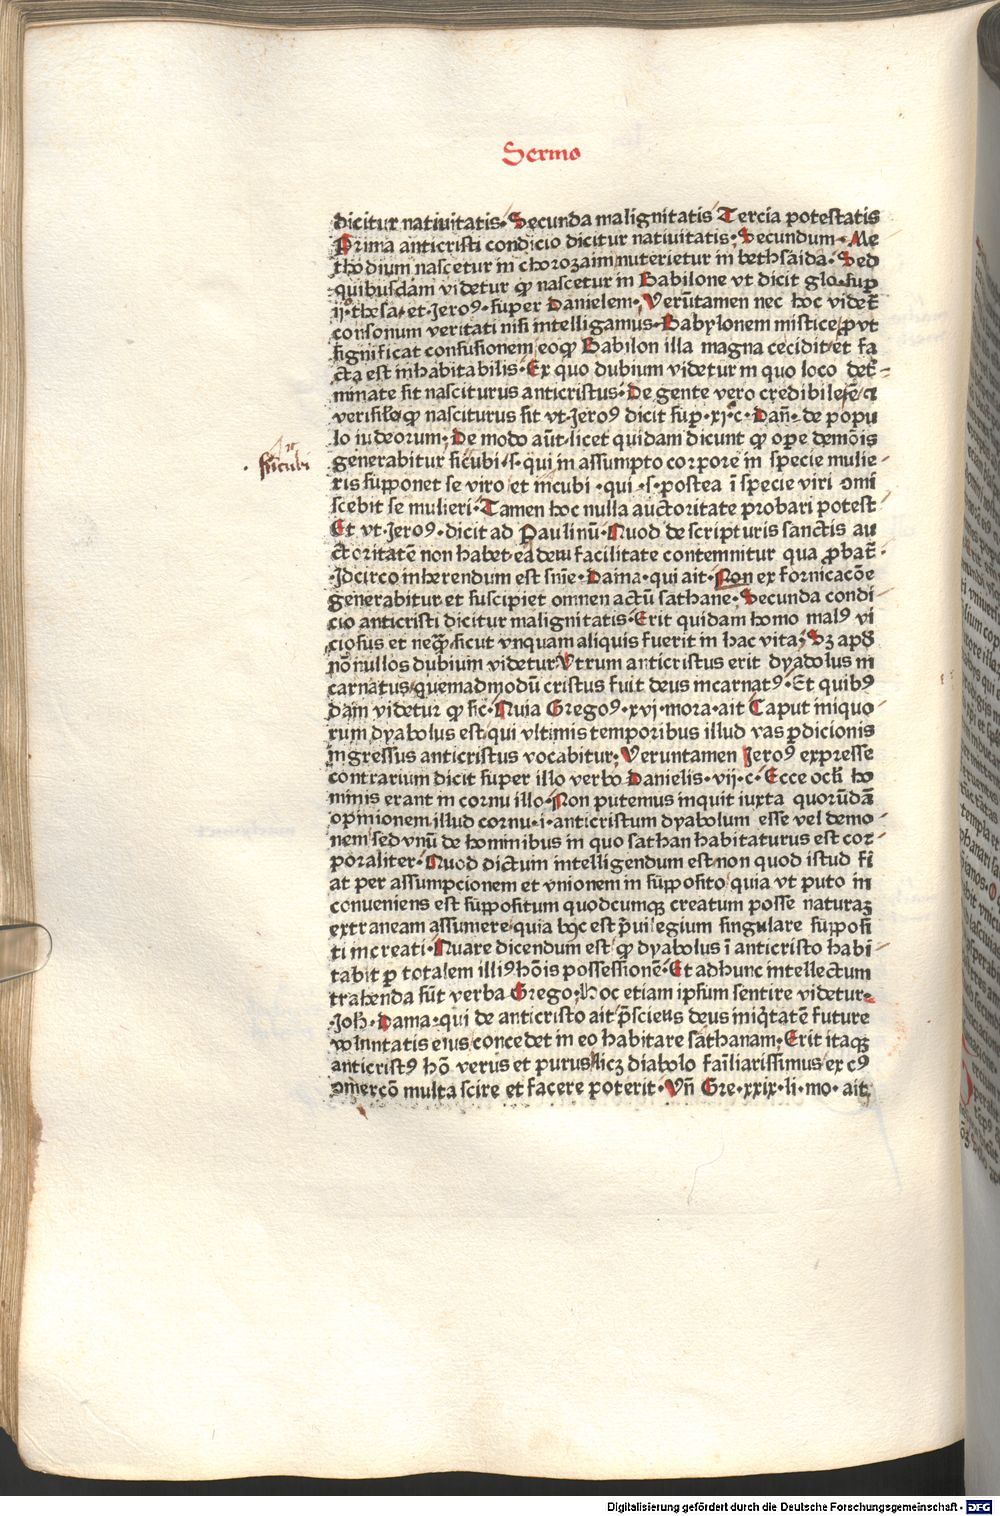 Sermo
dicitur nativitatis· Secunda malignitatis Tercia potestatis
Prima anticristi condicio dicitur nativitatis· Secundum· Me
thodium nascetur in chorozaim nuterietur in bethsaida· Sed
quibusdam videtur ꝙ nascetur in Babilone vt dicit glo· sup
ij· thesa· et· Jeroꝰ· super Danielem· Verūtamen nec hoc videt̄
consonum veritati nisi intelligamus· Babylonem mistice ꝓut
significat confusionem eoꝙ Babilon illa magna cecidit et fa
cta est inhabitabilis· Ex quo dubium videtur in quo loco det̄·
minate sit nasciturus anticristus· De gente vero credibile ē /
verisile ꝙ nasciturus sit vt· Jeroꝰ dicit sup̄· xi· c· Dan̄· de popu
lo iudeorum· De modo aūt· licet quidam dicunt ꝙ ope demōis
sūcubi
generabitur sūcubi· s· qui in assumpto corpore in specie mulie
ris sūpponet se viro et incubi· qui· s· postea ī specie viri omi
scebit se mulieri· Tamen hoc nulla auctoritate probari potest
Et vt· Jeroꝰ· dicit ad Paulinū· Quod de scripturis sanctis au
ctoritatē non habet· eadem facilitate contemnitur qua ꝓbat̄·
·Idcirco inherendum est snīe· Dama· qui ait· Non ex fornicacōe
generabitur et suscipiet omnen actū sathane· Secunda condi
cio anticristi dicitur malignitatis· Erit quidam homo malꝰ vi
ciosus et neqꝫ sicut vnquam aliquis fuerit in hac vita· Sꝫ apd̄
nōnullos dubium videtur Vtrum anticristus erit dyabolus in
carnatus quemadmodū cristus fuit deus incarnatꝰ· Et quibꝰ
dam videtur ꝙ sic· Quia Gregoꝰ· xvj· mora· ait Caput iniquo
rum dyabolus est qui vltimis temporibus illud vas ꝑdicionis
ingressus anticristus vocabitur· Veruntamen Jeroꝰ expresse
contrarium dicit super illo verbo Danielis· vij· c· Ecce ocłi ho
minis erant in cornu illo· Non putemus inquit iuxta quorūdā
opinionem illud cornu· i· anticristum dyabolum esse vel demo
nem sed vnū de hominibus in quo sathan habitaturus est cor
poraliter· Quod dictum intelligendum est non quod istud fi
at per assumpcionem et vnionem in sūpposito quia vt puto in
conueniens est sūppositum quodcumqꝫ creatum posse naturaꝫ
extraneam assumere quia hoc est p̄uilegium singulare sūpposi
ti increati· Quare dicendum est ꝙ dyabolus ī anticristo habi
tabit ꝑ totalem illiꝰ hōis possessionē· Et ad hunc intellectum
trahenda sūt verba Grego· Hoc etiam ipsum sentire videtur
·Joh̄· Dama· qui de anticristo ait p̄sciens deus iniqͥtatē future
voluntatis eius concedet in eo habitare sathanam· Erit itaqꝫ
anticristꝰ hō verus et purus licꝫ diabolo fāiliarissimus ex cꝰ
omercō multa scire et facere poterit· Vn̄ Gre· xxix· li· mo· ait
Digitalisierung gefördert durch die Deutsche Forschungsgemeinschaft - DFG